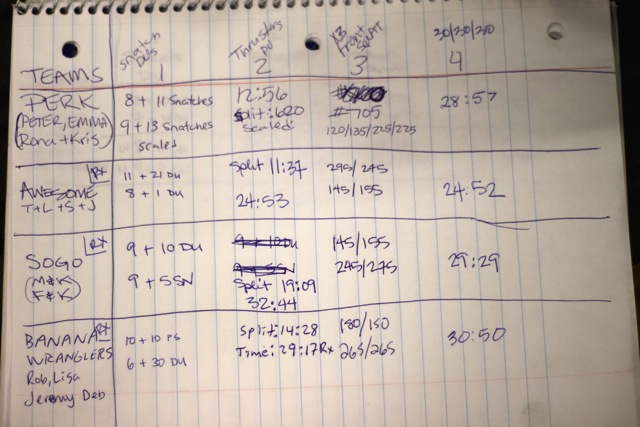 TEAMS
Snatch DUs 1
Thrusters DU 2
X3 Front SQUAT 3
30/20/20 4
PERK
(PETER, EMMA
Rona + Kris)
8 + 11 Snatches
9 + 13 Snatches
scaled
12:56
Split: 1620
Scaled:
#705
120/135/225/225
28:57
AWESOME Rx
T+L+S+J
11 + 21 DU
8 + 1 DU
Split 11:37
24:53
295/275
145/155
24:52
SOGO Rx
(M&K
F&K)
9 + 10 DU
9 + 5 SN
Split 19:09
32:44
145/155
245/275
29:29
BANANA Rx
WRANGLERS
Rob, Lisa
Jeremy Deb
10 + 10 PS
6 + 30 DU
Split: 14:28
Time: 29:17 Rx
180/150
265/265
30:50